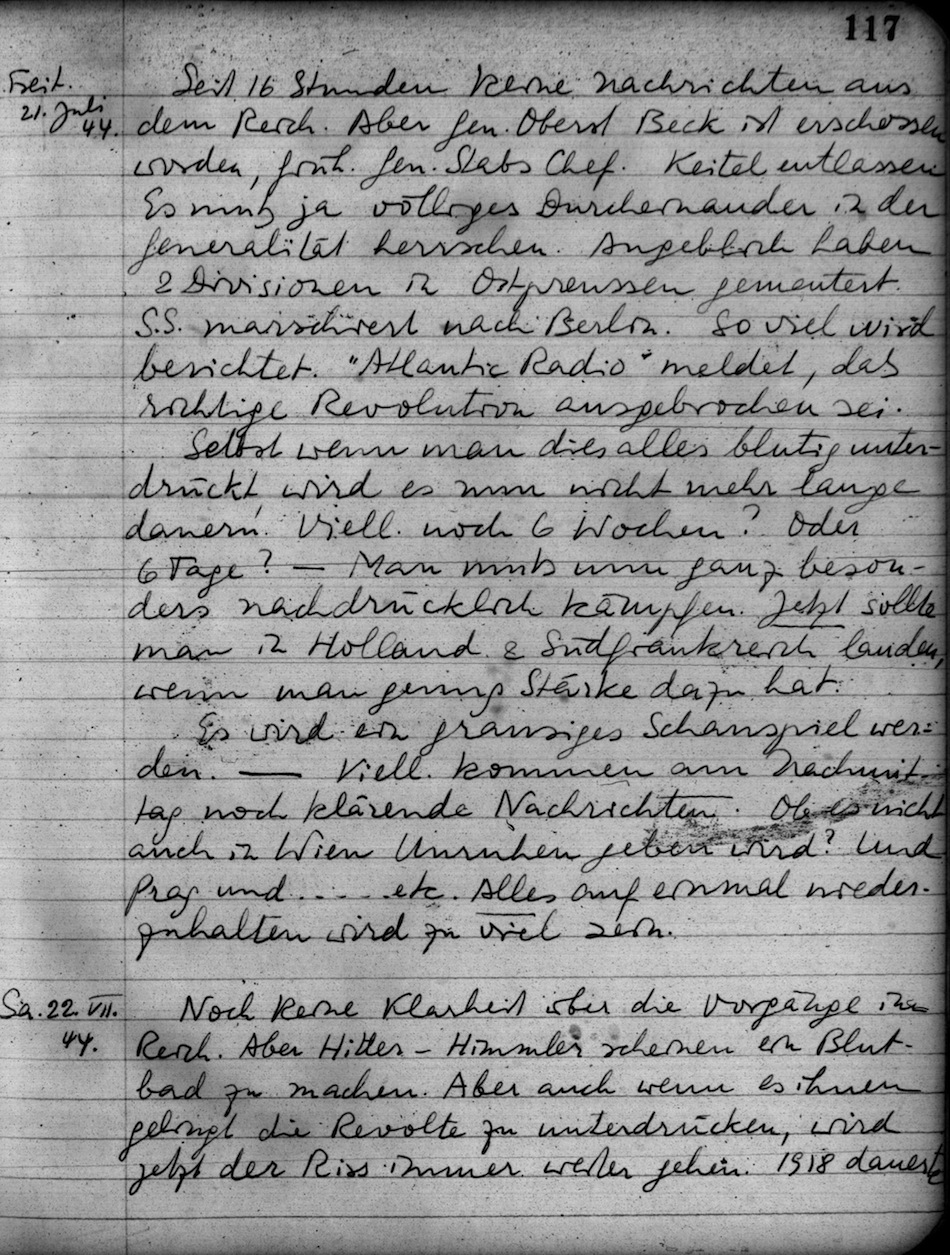 117
Freit.
21. Juli
44.
Seit 16 Stunden keine Nachrichten aus
dem Reich. Aber Gen. Oberst Beck ist erschossen
worden, früh. Gen. Stabs Chef. Keitel entlassen
Es muss ja völliges Durcheinander in der
Generalität herrschen. Angeblich haben
2 Divisionen in Ostpreussen gemeutert.
S.S. marschiert nach Berlin. So viel wird
berichtet. "Atlantic Radio" meldet, dass
richtige Revolution ausgebrochen sei.
Selbst wenn man dies alles blutig unter-
drückt, wird es nun nicht mehr lange
dauern. Viell. noch 6 Wochen? Oder
6 Tage? — Man muss nun ganz beson-
ders nachdrücklich kämpfen. Jetzt sollte
man in Holland & Südfrankreich landen,
wenn man genug Stärke dazu hat.
Es wird ein grausiges Schauspiel wer-
den. — Viell. kommen am Nachmit-
tag noch klärende Nachrichten. Ob es nicht
auch in Wien Unruhen geben wird? Und
Prag und ..... etc. Alles auf einmal nieder-
zuhalten wird zu viel sein.
Sa. 22. VII.
44.
Noch keine Klarheit über die Vorgänge im
Reich. Aber Hitler – Himmler scheinen ein Blut-
bad zu machen. Aber auch wenn es ihnen
gelingt die Revolte zu unterdrücken, wird
jetzt der Riss immer weiter gehen. 1918 dauerte